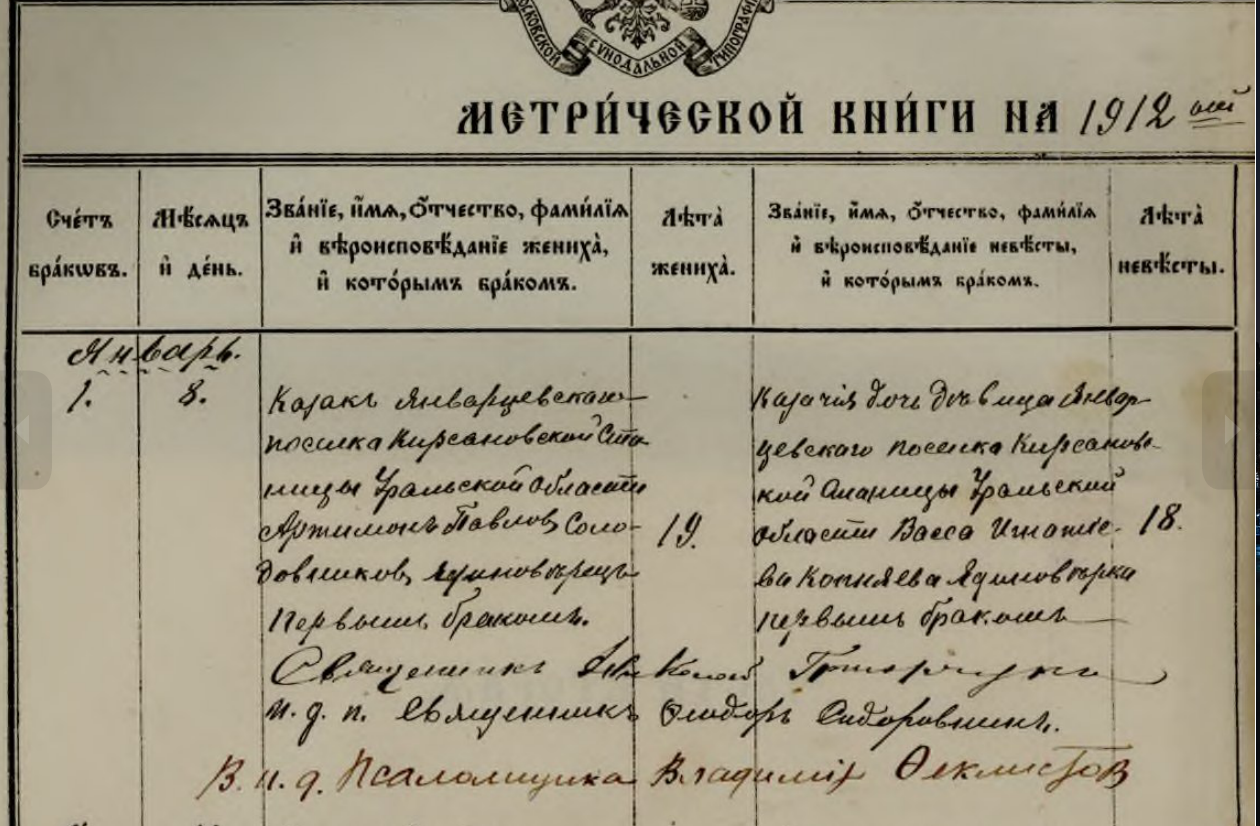 МОСКОВСКОЙ СУНОДАЛЬНОЙ ТИПОГРАФІИ
МЕТРИ́ЧЕСКОЙ КНИ́ГИ НА 1912 ый
Сче́тъ бра́кѡвъ.
Мѣ́сѧцъ и҆ де́нь.
Зва́нїе, и҆́мѧ, ѻ҆́тчество, фами́лїѧ
и҆ вѣроисповѣ́данїе жениха̀,
и҆ кото́рымъ бра́комъ.
Лѣта̀ жениха̀.
Зва́нїе, и҆́мѧ, ѻ҆́тчество, фами́лїѧ
и҆ вѣроисповѣ́данїе невѣ́сты,
и҆ кото́рымъ бра́комъ.
Лѣта̀ невѣ́сты.
Январь.
1.
8.
Казакъ Январцевскаго
поселка Кирсановской Ста
ницы Уральской области
Артимонъ Павловъ Соло-
довниковъ единовѣрецъ
первымъ бракомъ.
19.
Казачія дочь дѣвица Январ-
цевскаго поселка Кирсановс-
кой станицы Уральской
области Васса Игнатіе-
ва Копняева единовѣрка
первымъ бракомъ
18.
Священникъ Николай
и. д. п. Священникъ Ѳеодоръ Сидоровнинъ.
В. и. д. Псаломщика Владиміръ Ѳеклистов